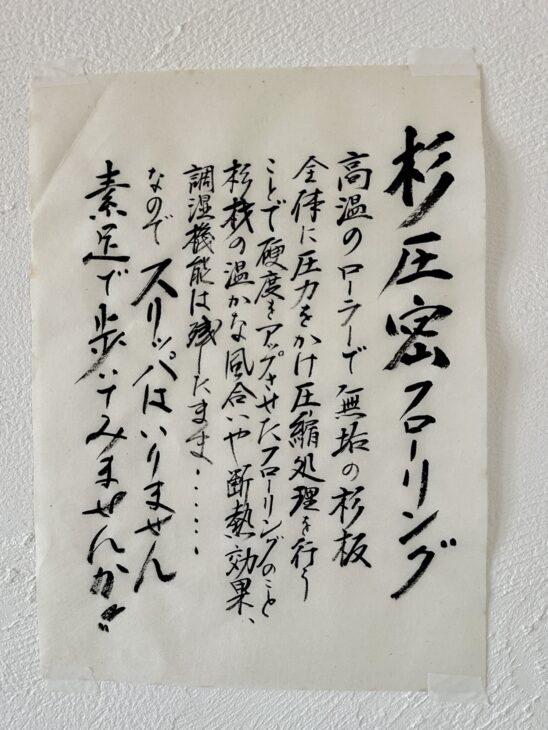 杉圧密フローリング
高温のローラーで無垢の杉板
全体に圧力をかけ圧縮処理を行う
ことで硬度をアップさせたフローリングのこと
杉板の温かな風合いや断熱効果、
調湿機能は残したまま・・・・・
なので スリッパはいりません
素足で歩いてみませんか〃